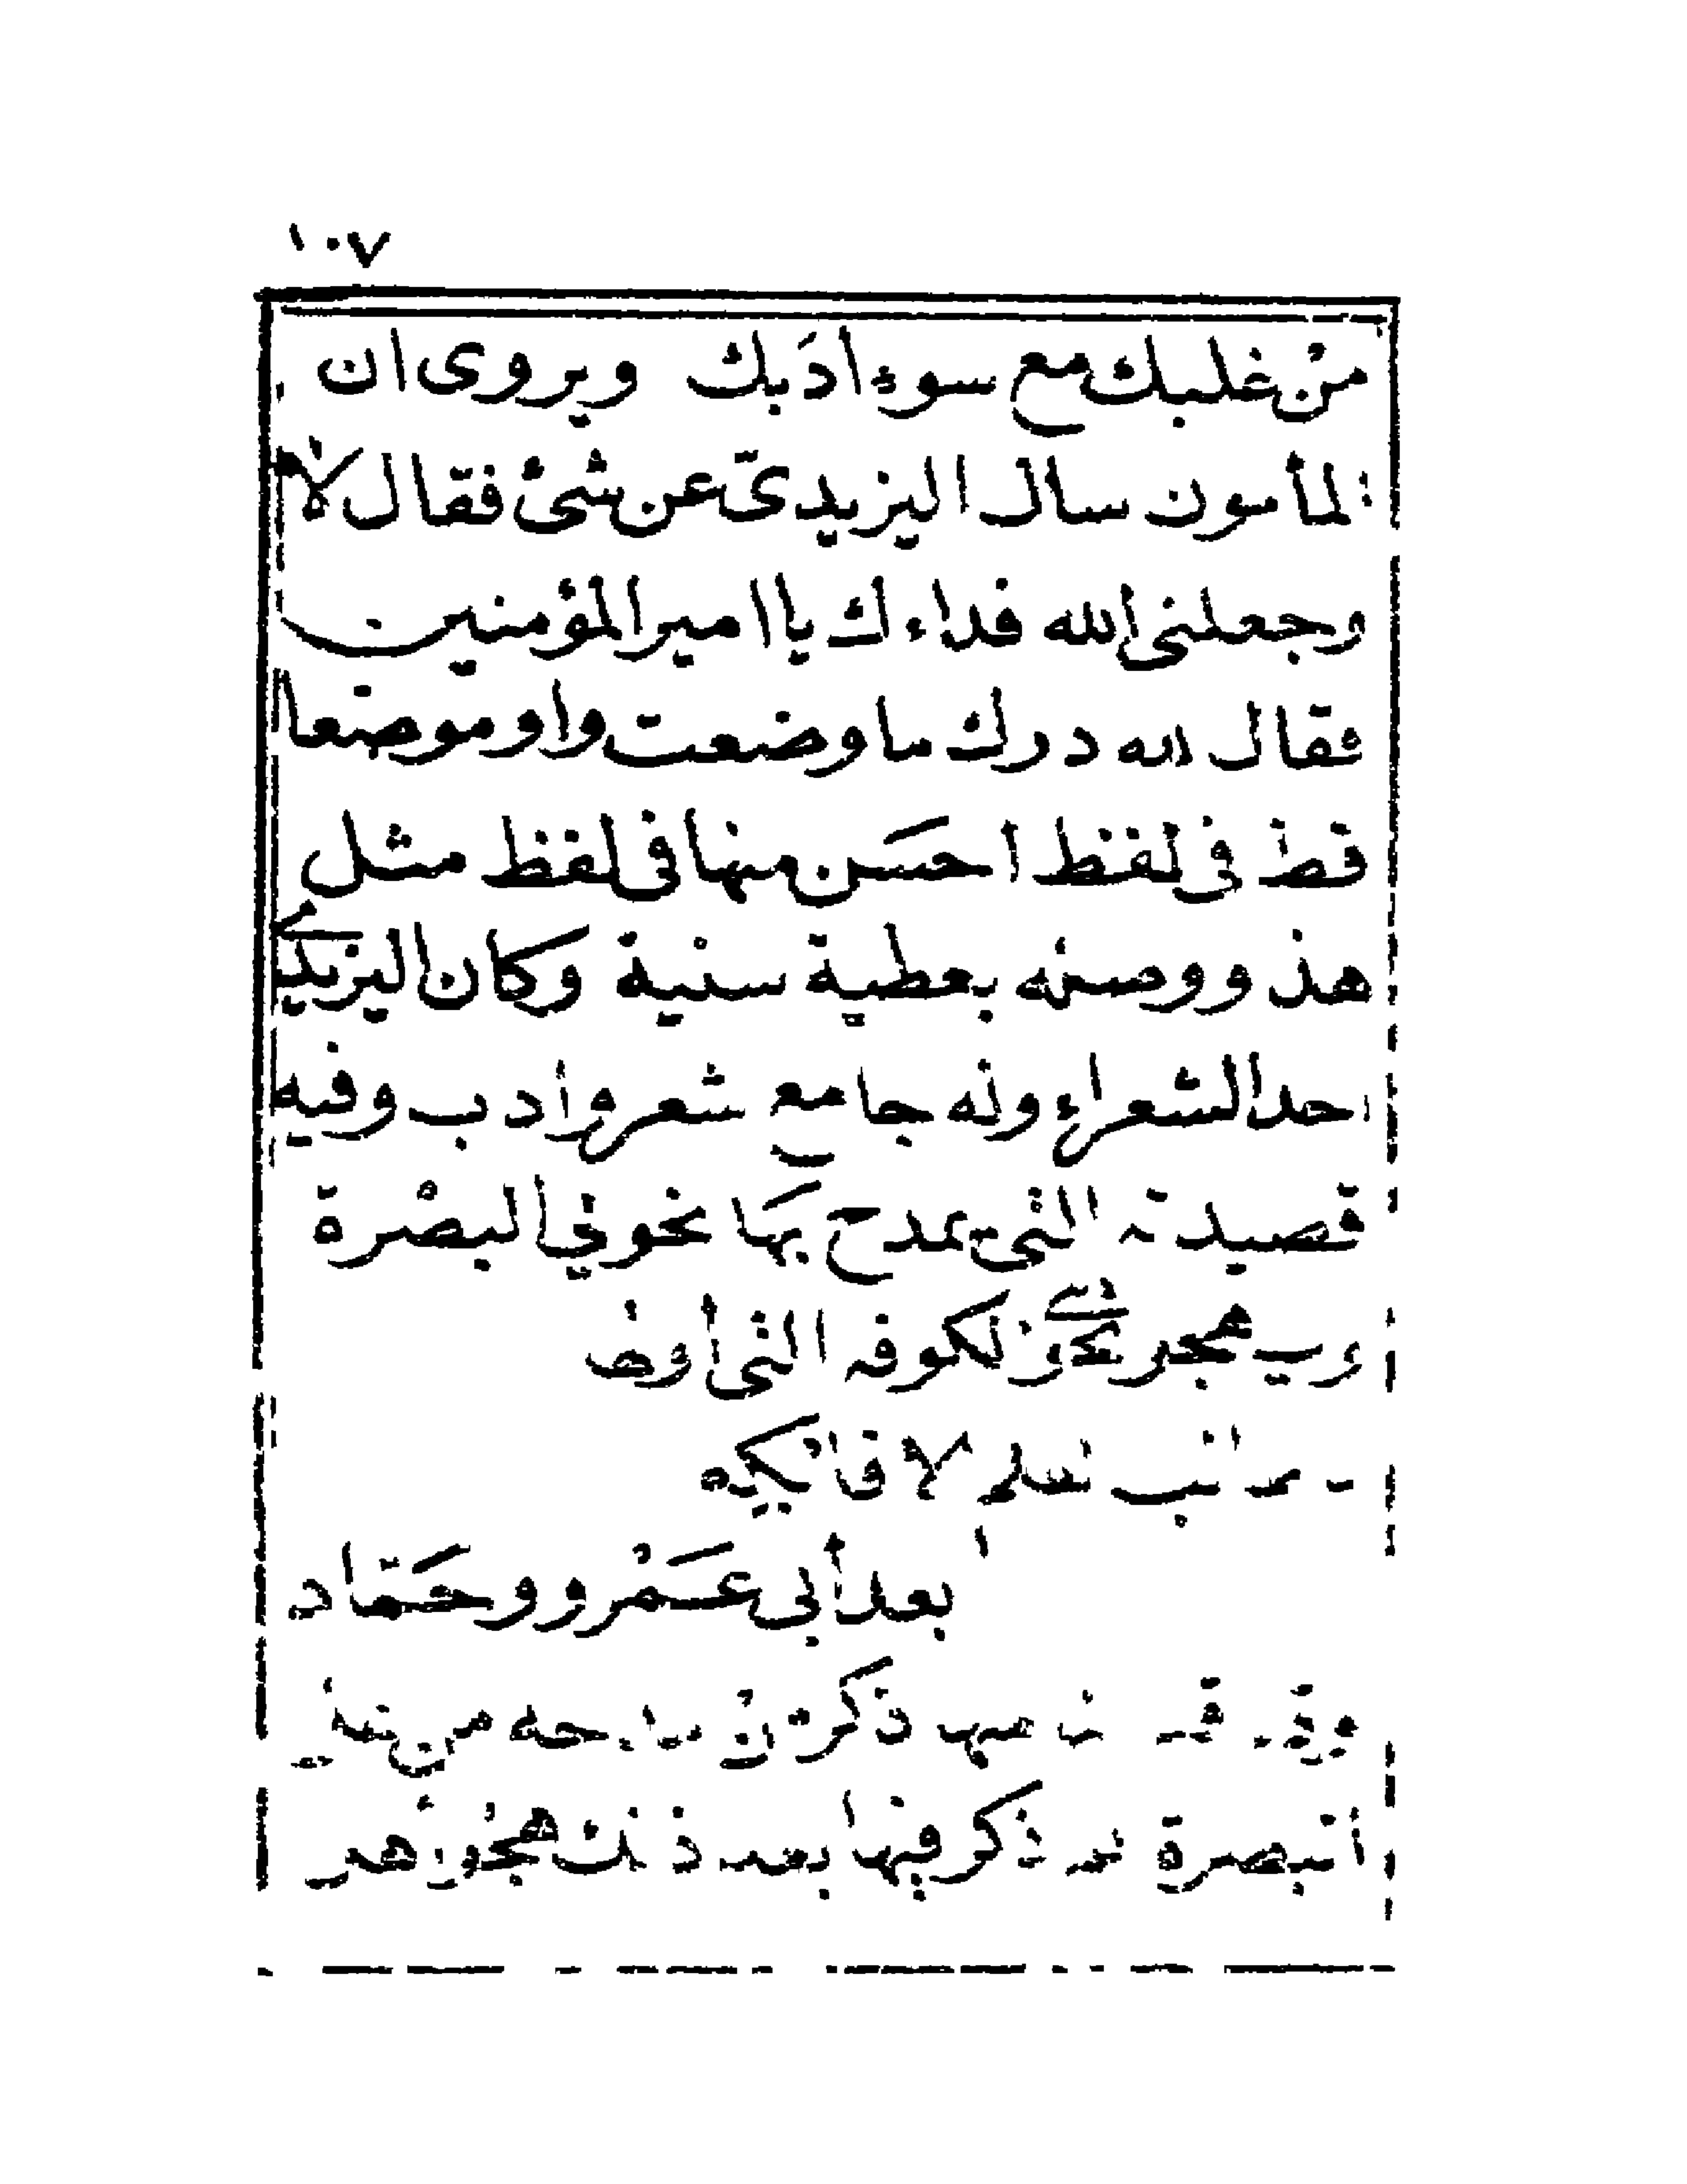 ١٠٧
من غلبك مع سوء ادَبك ويروى ان
المأمون سال اليزيدىّ عن شئ فقال لا
وجعلنى الله فداءك يا امير المؤمنين
فقال لله درك ما وضعت واو موضعا
قط فى لفظ احسَن منها فى لفظ مثل
هذا ووصله بعطية سنية وكان اليزيدى
احد الشعراء وله جامع شعر وادب وفيه
قصيدته التى يمدح بهَا نحويي البصْرة
ويهجو نحويي الكوفه التى اولها
يا طالب العلم الا فابكه
بعد أبى عَمْرو وحَمّاد
ذكرنا من
البصرة ذكر فيها بعد ذلك هجو اهل